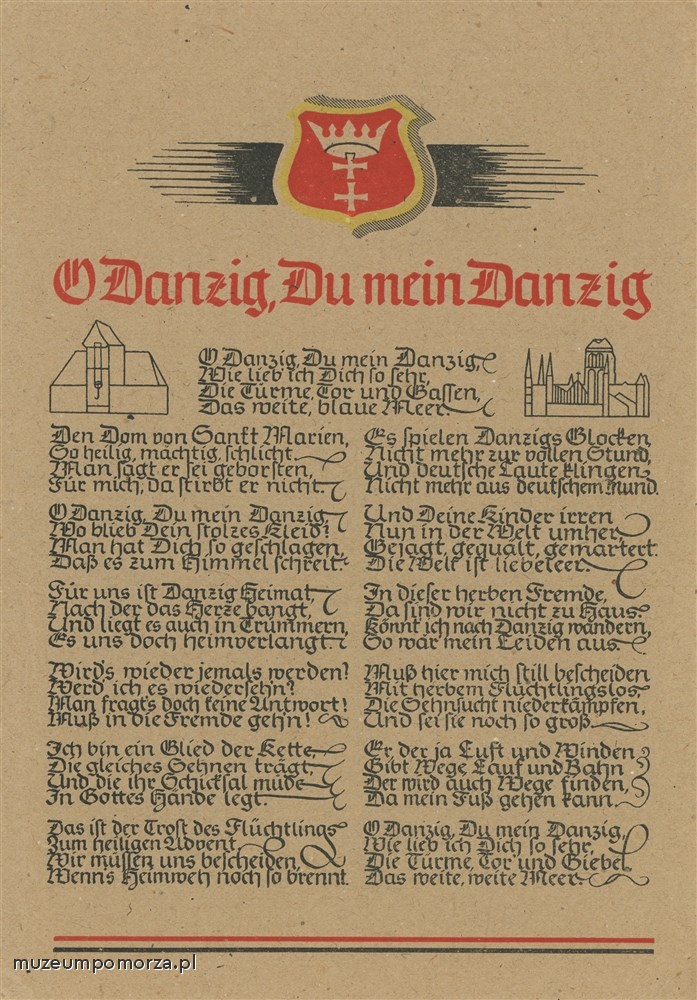 O Danzig, Du mein Danzig
O Danzig, Du mein Danzig,
Wie lieb ich Dich so sehr,
Die Türme, Tor und Gassen,
Das weite, blaue Meer.
Den Dom von Sankt Marien,
So heilig, mächtig, schlicht.
Man sagt er sei geborsten,
Für mich, da stirbt er nicht.
O Danzig, Du mein Danzig
Wo blieb Dein stolzes Kleid?
Man hat Dich so geschlagen,
Daß es zum Himmel schreit.
Für uns ist Danzig Heimat
Nach der das Herze bangt,
Und liegt es auch in Trümmern,
Es uns doch heimverlangt.
Wird's wieder jemals werden?
Werd ich es wiedersehn?
Man fragt's doch keine Antwort!
Muß in die Fremde gehn!
Ich bin ein Glied der Kette
Die gleiches Sehnen trägt,
Und die ihr Schicksal müde
In Gottes Hände legt.
Das ist der Trost des Flüchtlings
Zum heiligen Advent.
Wir müssen uns bescheiden,
Wenn's Heimweh noch so brennt.
Es spielen Danzigs Glocken,
Nicht mehr zur vollen Stund,
Und deutsche Laute klingen
Nicht mehr aus deutschem Mund.
Und Deine Kinder irren
Nun in der Welt umher,
Gejagt, gequält, gemartert.
Die Welt ist liebeleer.
In dieser herben Fremde,
Da sind wir nicht zu Haus
Könnt ich nach Danzig wandern,
So wär mein Leiden aus.
Muß hier mich still bescheiden
Mit herbem Flüchtlingslos
Die Sehnsucht niederkämpfen,
Und sei sie noch so groß.
Er, der ja Luft und Winden
Gibt Wege, Lauf und Bahn
Der wird auch Wege finden,
Da mein Fuß gehen kann.
O Danzig, Du mein Danzig,
Wie lieb ich Dich so sehr,
Die Türme, Tor und Giebel,
Das weite, weite Meer.
muzeumpomorza.pl